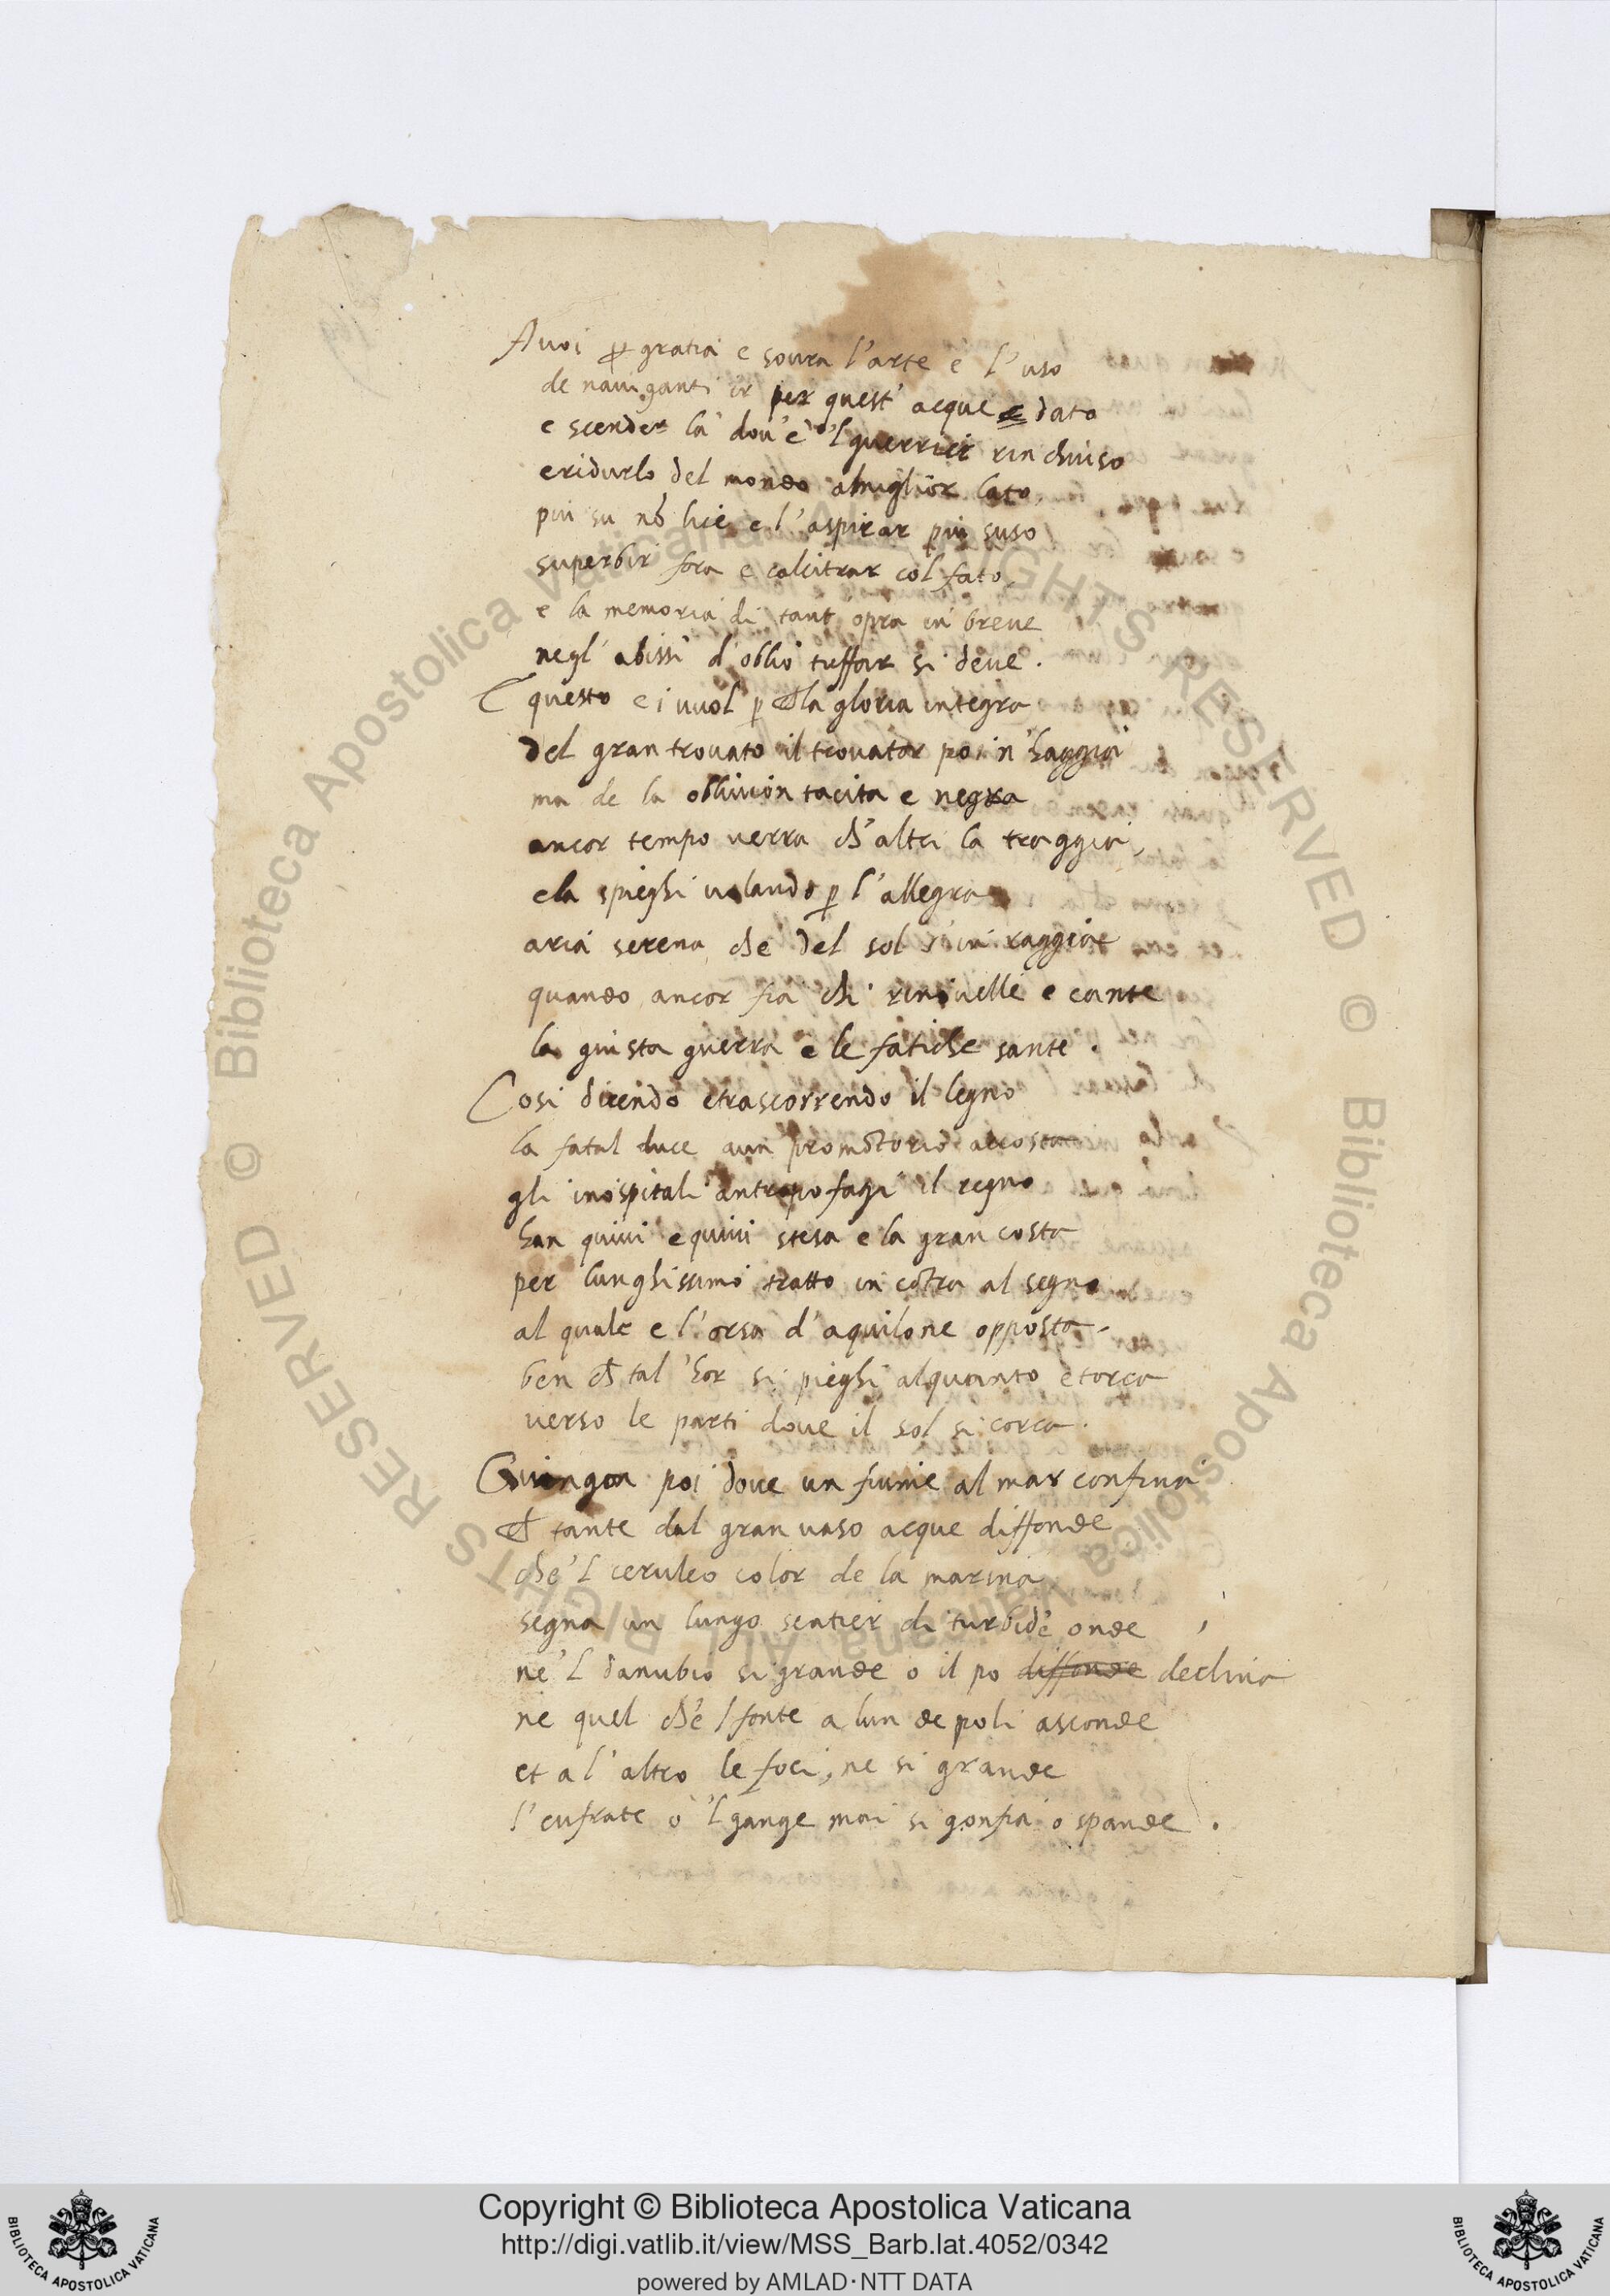 A voi p gratia e sovra l'arte e l'uso
de naviganti ir per quest' acque e dato
e scender là dov'è 'l guerrier rinchiuso
e ridurlo del mondo al miglior lato
più su nõ lice e l'aspirar più suso
superbir fora e calcitrar col fato
e la memoria di tant' opra in breve
negl' abissi d'oblio tuffar si deve.
E questo ei vuol p chla gloria integra
del gran trovato il trovator poi n'haggia
ma de la oblivion tacita e negra
ancor tempo verra ch'altri la traggia,
e la spieghi volando p l'allegra
aria serena che del sol s'irraggia
quando ancor fia chi rinovelle e cante
la giusta guerra e le fatiche sante.
Così dicendo e trascorrendo il legno
la fatal duce a un promõtorio accosta
gli inospitali antropofagi il regno
han quivi e quivi stesa e la gran costa
per lunghissimo tratto in cõtra al segno
al quale e l'orsa d'aquilone opposta.
ben ch tal'hor si pieghi alquanto e torca
verso le parti dove il sol si corca.
Giunga poi dove un fiume al mar confina
ch tante dal gran vaso acque diffonde
che'l ceruleo color de la marina
segna un lungo sentier di turbide onde
ne'l danubio si grande o il po diffonde declina
ne quel che'l fonte a l'un de poli asconde
et a l'altro le foci, ne si grande
l'eufrate o 'l gange mai si gonfia o spande.
Copyright © Biblioteca Apostolica Vaticana
http://digi.vatlib.it/view/MSS_Barb.lat.4052/0342
powered by AMLAD·NTT DATA
BIBLIOTECA APOSTOLICA VATICANA
BIBLIOTECA APOSTOLICA VATICANA
© Biblioteca Apostolica Vaticana ALL RIGHTS RESERVED © Biblioteca Apostolica Vaticana ALL RIGHTS RESERVED